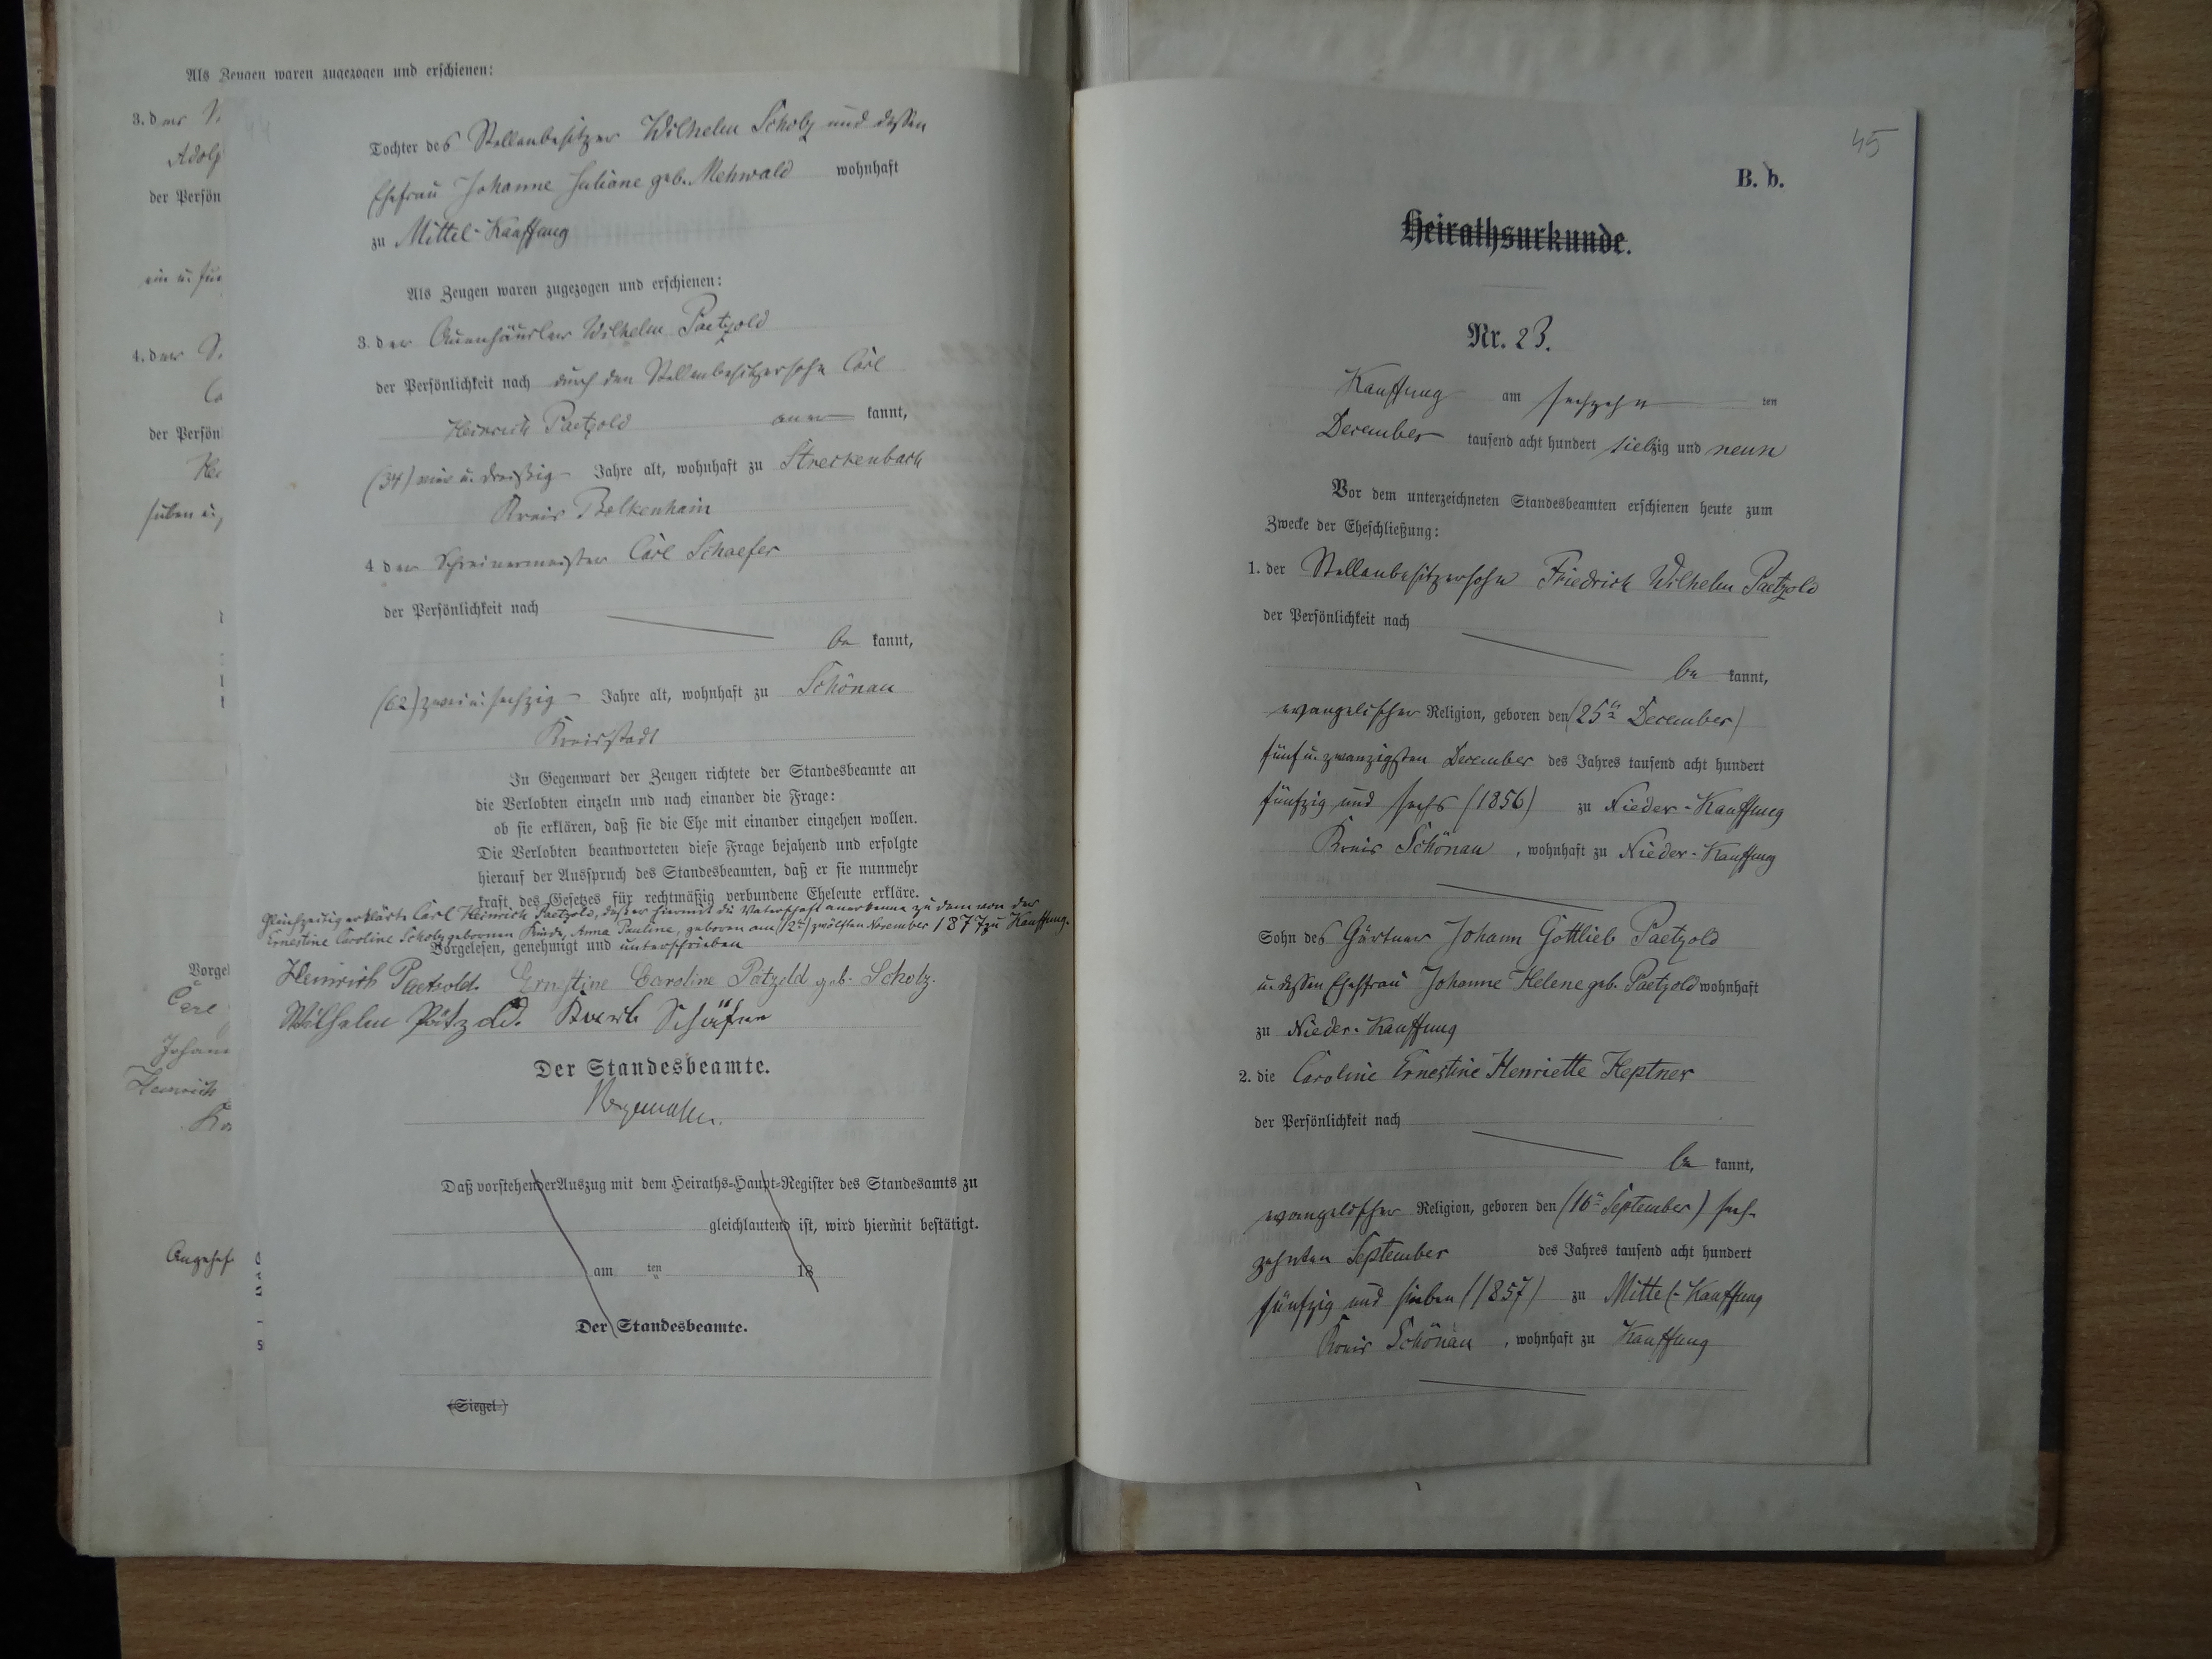 Als Zeugen waren zugezogen und erschienen:
3. der
Adolp
der Persön
ein u. fün
4. der
Ca
der Persön
Hei
sieben u.
Vorgel
Carl
Johann
Heinrich
Angehef
Tochter des Stellenbesitzer Wilhelm Scholz und dessen
Ehefrau Johanne Juliane geb. Mehwald wohnhaft
zu Mittel-Kauffung
Als Zeugen waren zugezogen und erschienen:
3. der Auenhäusler Wilhelm Paetzold
der Persönlichkeit nach durch den Stellenbesitzersohn Carl
Heinrich Paetzold aner kannt,
(34) vier u. dreißig Jahre alt, wohnhaft zu Streckenbach
Kreis Bolkenhain
4 der Schreinermeister Carl Schaefer
der Persönlichkeit nach
be kannt,
(62) zwei u. sechzig Jahre alt, wohnhaft zu Schönau
Kreisstadt
In Gegenwart der Zeugen richtete der Standesbeamte an
die Verlobten einzeln und nach einander die Frage:
ob sie erklären, daß sie die Ehe mit einander eingehen wollen.
Die Verlobten beantworteten diese Frage bejahend und erfolgte
hierauf der Ausspruch des Standesbeamten, daß er sie nunmehr
kraft des Gesetzes für rechtmäßig verbundene Eheleute erkläre.
Gleichzeitig erklärte Carl Heinrich Paetzold, daß er hiermit die Vaterschaft anerkenne zu dem von der
Ernestine Caroline Scholz gebornen Kinde, Anna Pauline, geboren am (12ten) zwölften November 1877 zu Kauffung.
Vorgelesen, genehmigt und unterschrieben
Heinrich Paetzold. Ernestine Caroline Pätzold geb. Scholz.
Wilhelm Pätzold. Karl Schäfer
Der Standesbeamte.
Daß vorstehender Auszug mit dem Heiraths-Haupt-Register des Standesamts zu
gleichlautend ist, wird hiermit bestätigt.
am ten 18
Der Standesbeamte.
(Siegel.)
45
B. b.
Heirathsurkunde.
Nr. 23.
Kauffung am sechzehn ten
December tausend acht hundert siebzig und neun
Vor dem unterzeichneten Standesbeamten erschienen heute zum
Zwecke der Eheschließung:
1. der Stellenbesitzersohn Friedrich Wilhelm Paetzold
der Persönlichkeit nach
be kannt,
evangelischer Religion, geboren den (25ten December)
fünf u. zwanzigsten December des Jahres tausend acht hundert
fünfzig und sechs (1856) zu Nieder-Kauffung
Kreis Schönau, wohnhaft zu Nieder-Kauffung
Sohn des Gärtner Johann Gottlieb Paetzold
u. dessen Ehefrau Johanne Helene geb. Paetzold wohnhaft
zu Nieder-Kauffung
2. die Caroline Ernestine Henriette Heptner
der Persönlichkeit nach
be kannt,
evangelischer Religion, geboren den (16ten September) sech-
zehnten September des Jahres tausend acht hundert
fünfzig und sieben (1857) zu Mittel-Kauffung
Kreis Schönau, wohnhaft zu Kauffung